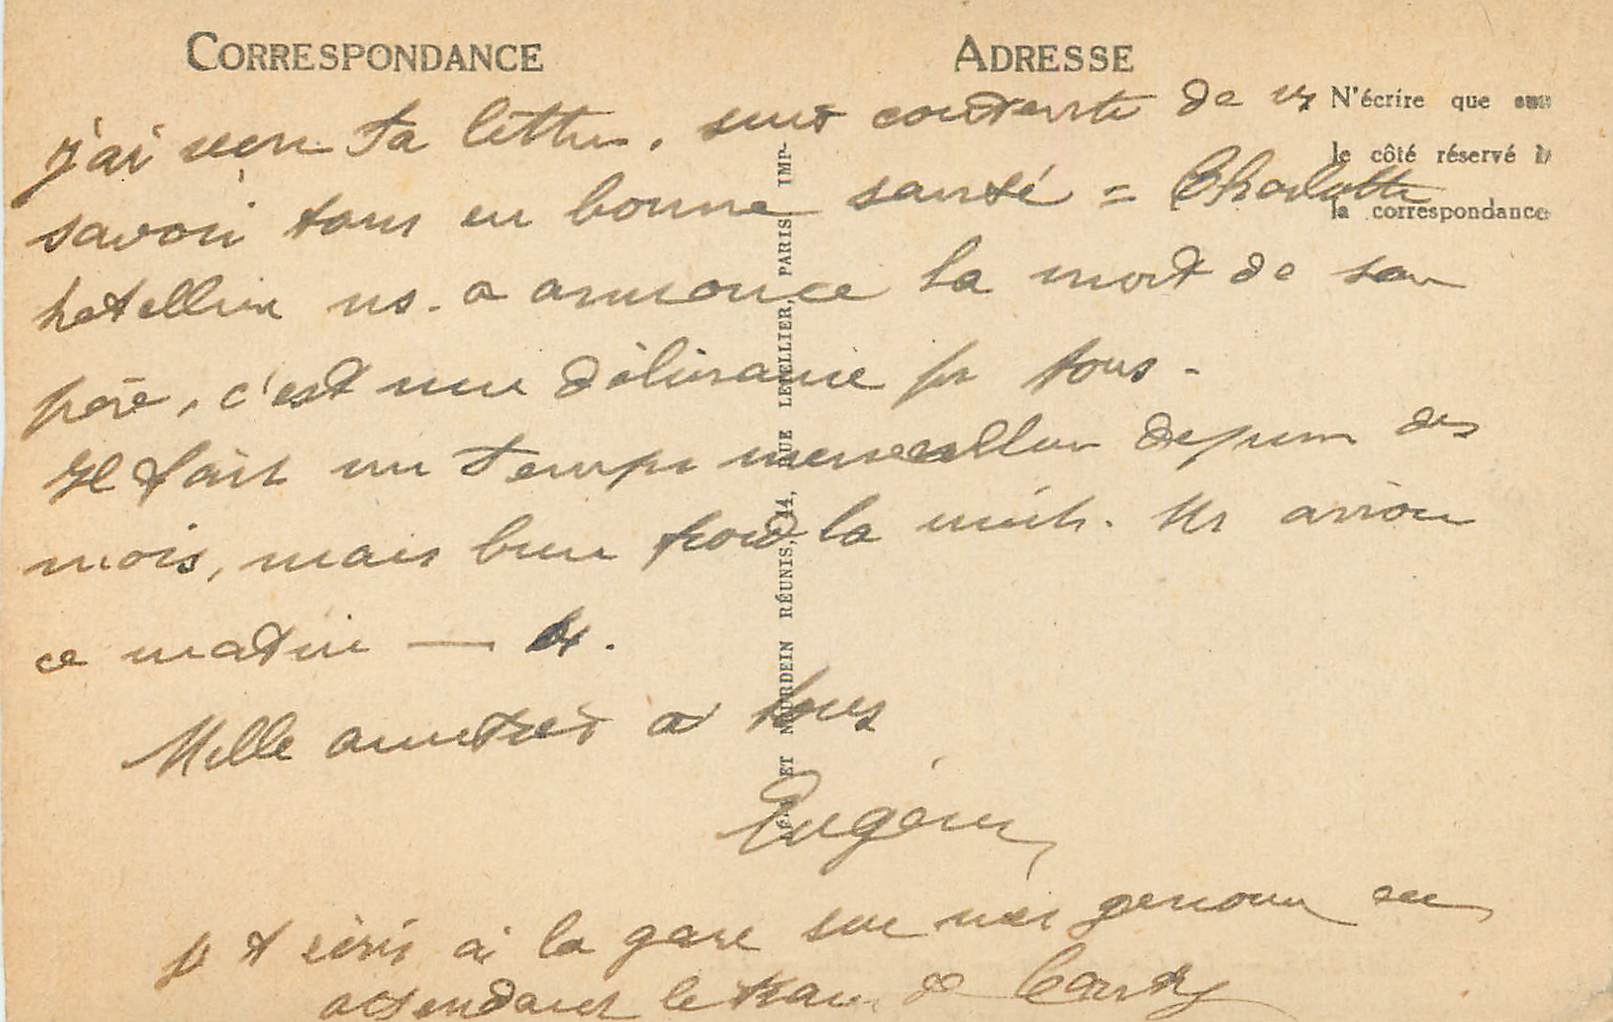 CORRESPONDANCE
ADRESSE
N'écrire que sur
le côté réservé à
la correspondance
j'ai reçu ta lettre, suis contente de vs
savoir tous en bonne santé = Charlotte
ns. a annonce la mort de son
père, c'est une délivrance pr tous -
Il fait un temps merveilleux depuis des
mois, mais bien froid la nuit. Ns avions
ce matin —
Mille amitiés à tous
Eugénie
je t'écris à la gare sur mes genoux en
attendant le train de
ET NEURDEIN RÉUNIS, 44, RUE LETELLIER, PARIS IMP-